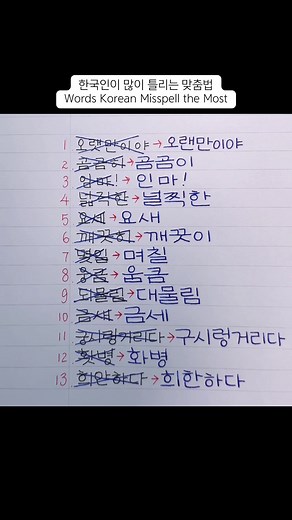 한국인이 많이 틀리는 맞춤법
Words Korean Misspell the Most
1 오랫만이야 → 오랜만이야
2 곰곰히 → 곰곰이
3 임마! → 인마!
4 넓직한 → 널찍한
5 요세 → 요새
6 깨끗히 → 깨끗이
7 몇일 → 며칠
8 웅큼 → 움큼
9 되물림 → 대물림
10 금새 → 금세
11 궁시렁거리다 → 구시렁거리다
12 → 화병
13 희안하다 → 희한하다